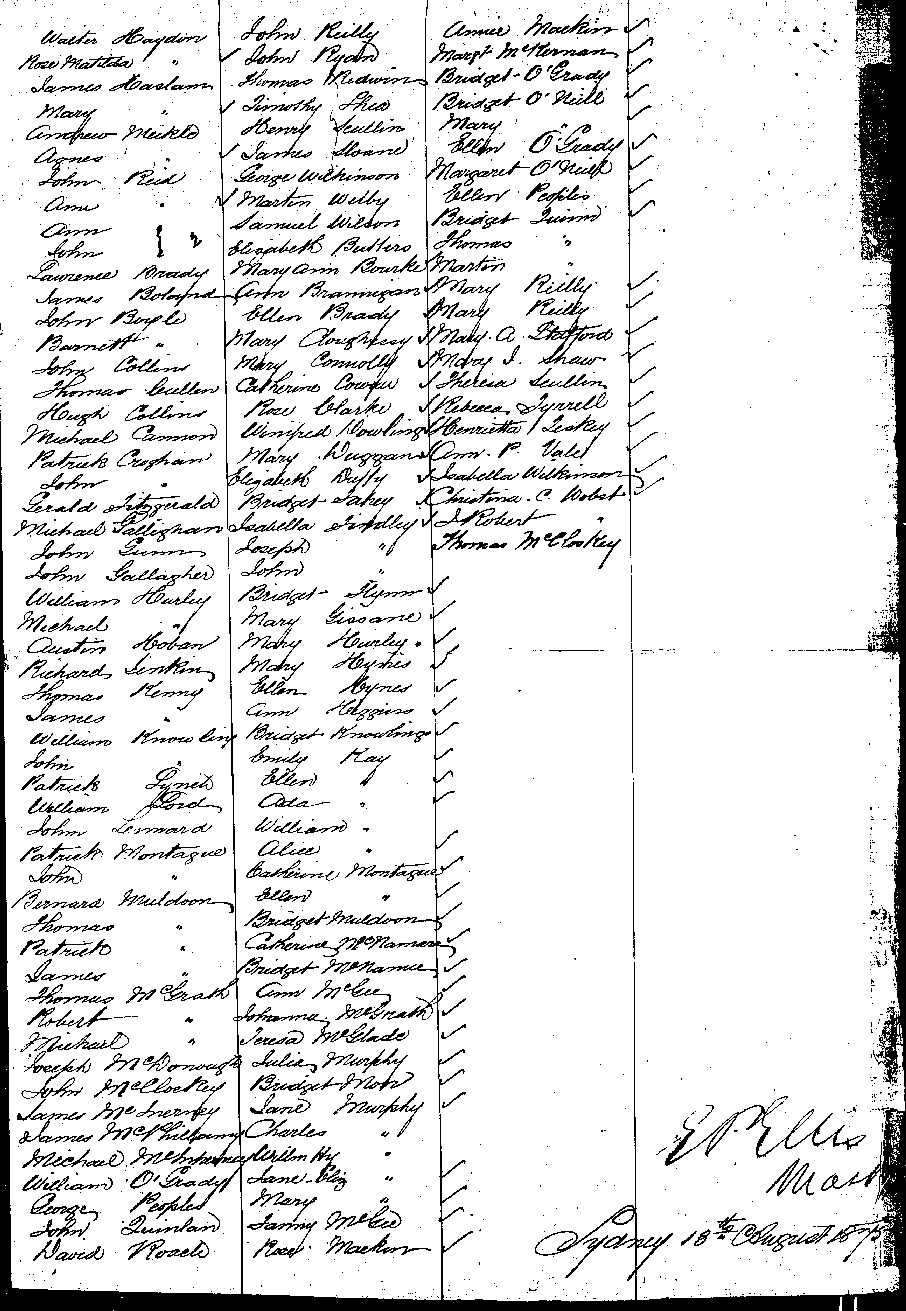 Walter Haydon
Rose Matilda "
James Haslam
Mary "
Andrew Meikle
Agnes "
John Reid
Ann "
Ann } "
John
Lawrence Brady
James Boland
John Boyle
Barnett "
John Collins
Thomas Cullen
Hugh Collins
Michael Cannon
Patrick Croghan
John "
Gerald Fitzgerald
Michael Gallighan
John Gunn
John Gallagher
William Hurley
Michael "
Austin Hoban
Richard Jenkins
Thomas Kenny
James "
William Knowling
John "
Patrick Lynch
William Lord
John Lennard
Patrick Montague
John "
Bernard Muldoon
Thomas "
Patrick "
James "
Thomas McGrath
Robert "
Michael "
Joseph McDonough
John McCloskey
James McInerney
James
Michael
William O'Grady
George Peoples
John Quinlan
David Roach
John Reilly
John Ryan
Thomas Ridwin
Timothy Shea
Henry Scullin
James Sloane
George Wilkinson
Martin Wilby
Samuel Wilson
Elizabeth Butters
Mary Ann Bourke
Ann Branningan
Ellen Brady
Mary Cloughessy
Mary Connolly
Catherine
Rose Clarke
Winifred Dowling
Mary Duggan
Elizabeth Duffy
Bridget Fahey
Isabella Findley
Joseph "
John "
Bridget Flynn
Mary Gissane
Mary Hurley
Mary Hynes
Ellen Hynes
Ann Higgins
Bridget Knowling
Emily Kay
Ellen "
Ada "
William "
Alice "
Catherine Montague
Ellen "
Bridget Muldoon
Catherine McNamara
Bridget McNamee
Ann McGee
Johanna McGrath
Teresa McGlade
Julia Murphy
Bridget Moor
Jane Murphy
Charles "
Willm Hy "
Jane Eliz "
Mary "
Fanny McGee
Rose Mackin
Annie Mackin
Margt McKernan
Bridget O'Grady
Bridget O'Neill
Mary "
Ellen O'Grady
Margaret O'Neill
Ellen Peoples
Bridget Quinn
Thomas "
Martin "
Mary Reilly
Mary Reilly
Mary A. Stafford
Mary J. Shaw
Theresa Scullin
Rebecca Tyrrell
Henrietta Leskey
Ann P. Vale
Isabella Wilkinson
Christina C. Wobst
J. Robert "
Thomas McCloskey
E P Ellis
Mast
Sydney 18th August 1875